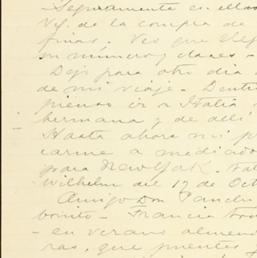 Seguramente en ellas
Vd. de la compra de
finas. Veo que Velp
en número y clases -
Dejo para otro dia
de mi viaje. Dentro
pienso ir a Italia
hermana y de alli
Hasta ahora mi p
carme a mediado
para New York.
Wilhelm del 17 de Oct
Amigo Don Pancho
bonito - Francia
en verano
ras, que puentes